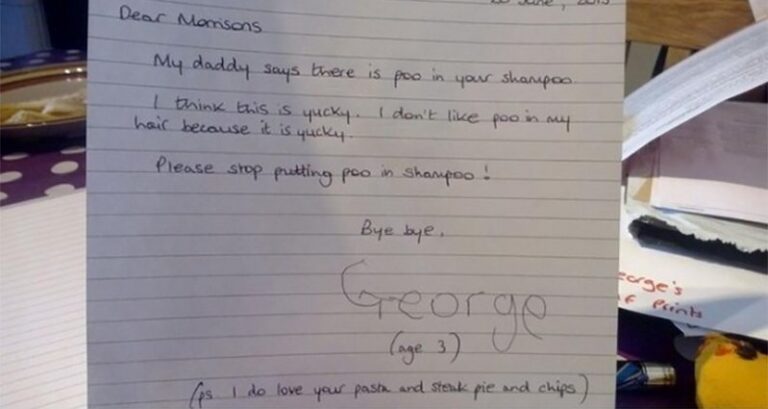 June, 2015
Dear Morrisons
My daddy says there is poo in your shampoo.
I think this is yucky. I don't like poo in my
hair because it is yucky.
Please stop putting poo in shampoo!
Bye bye,
George
(age 3)
(ps I do love your pasta and steak pie and chips)
eorge's
Prints